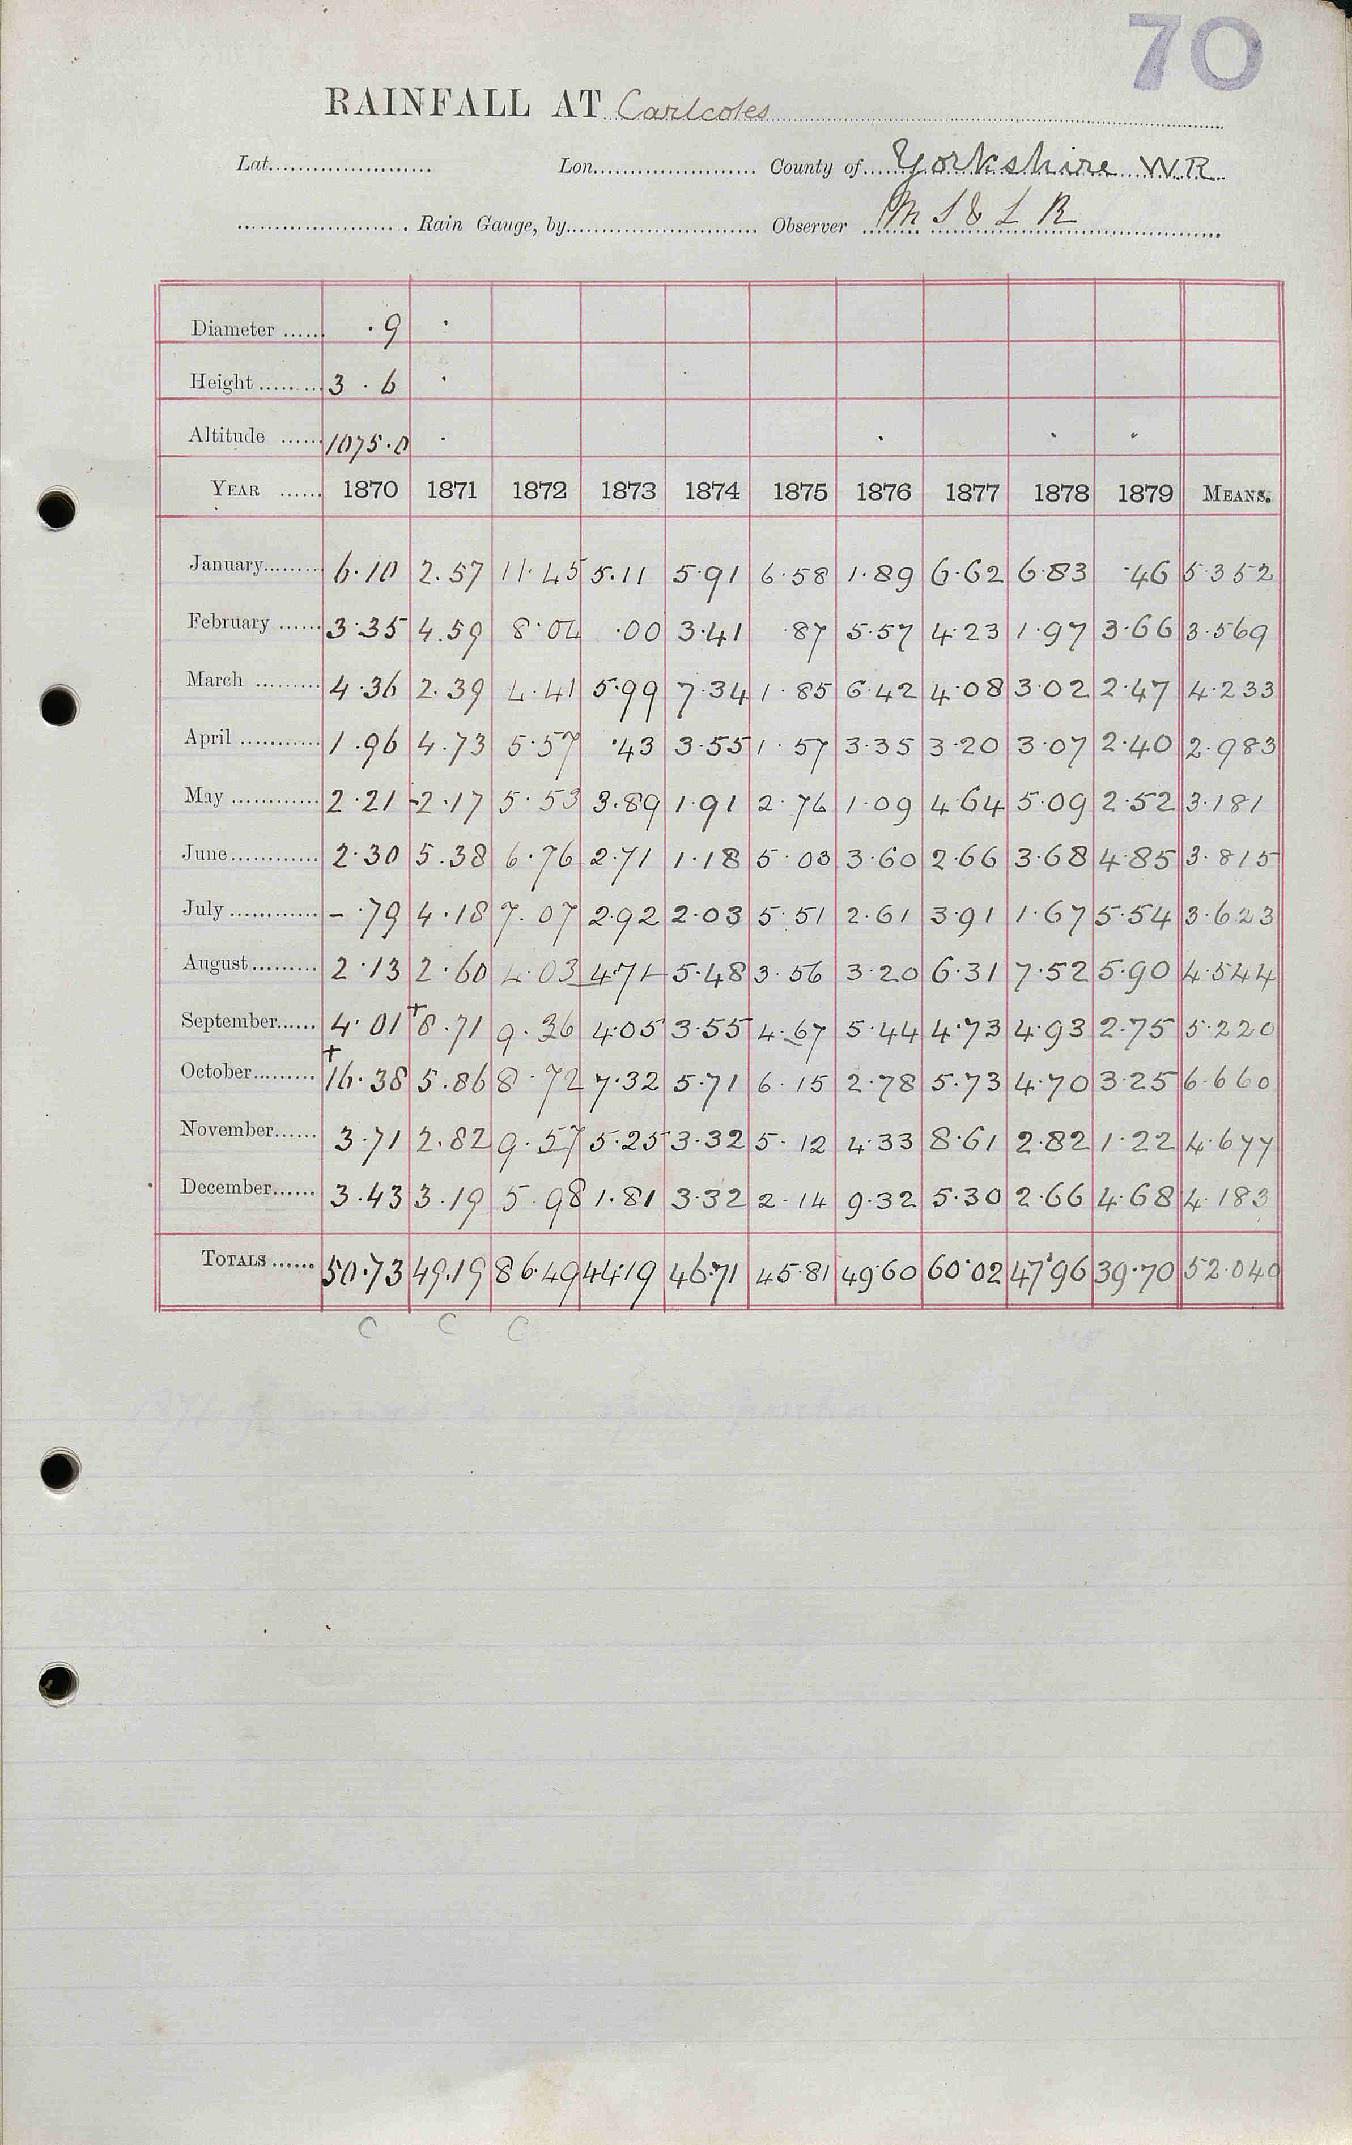 70
RAINFALL AT Carlcotes
Lat. Lon. County of Yorkshire W R
Rain Gauge, by Observer M S & L R
Diameter ·9
Height 3·6
Altitude 1075·0
YEAR 1870 1871 1872 1873 1874 1875 1876 1877 1878 1879 MEANS.
January 6·10 2.57 11·45 5.11 5·91 6·58 1·89 6·62 6·83 ·46 5·352
February 3·35 4.59 8·04 ·00 3·41 ·87 5·57 4·23 1·97 3·66 3·569
March 4·36 2.39 4·41 5·99 7·34 1·85 6·42 4·08 3·02 2·47 4·233
April 1·96 4.73 5·57 ·43 3·55 1·57 3·35 3·20 3·07 2·40 2·983
May 2·21 2·17 5·53 3·89 1·91 2·76 1·09 4·64 5·09 2·52 3·181
June 2·30 5.38 6·76 2·71 1·18 5·03 3·60 2·66 3·68 4·85 3·815
July – ·79 4·18 7·07 2·92 2·03 5·51 2·61 3·91 1·67 5·54 3·623
August 2·13 2·60 4·03 4·71 5·48 3·56 3·20 6·31 7·52 5·90 4·544
September 4·01 +8·71 9·36 4·05 3·55 4·67 5·44 4·73 4·93 2·75 5·220
October +16·38 5.86 8·72 7·32 5·71 6·15 2·78 5·73 4·70 3·25 6·660
November 3·71 2·82 9·57 5·25 3·32 5·12 4·33 8·61 2·82 1·22 4·677
December 3·43 3·19 5·98 1·81 3·32 2·14 9·32 5·30 2·66 4·68 4·183
TOTALS 50·73 49·19 86·49 44·19 46·71 45·81 49·60 60·02 47·96 39·70 52·040
C C C